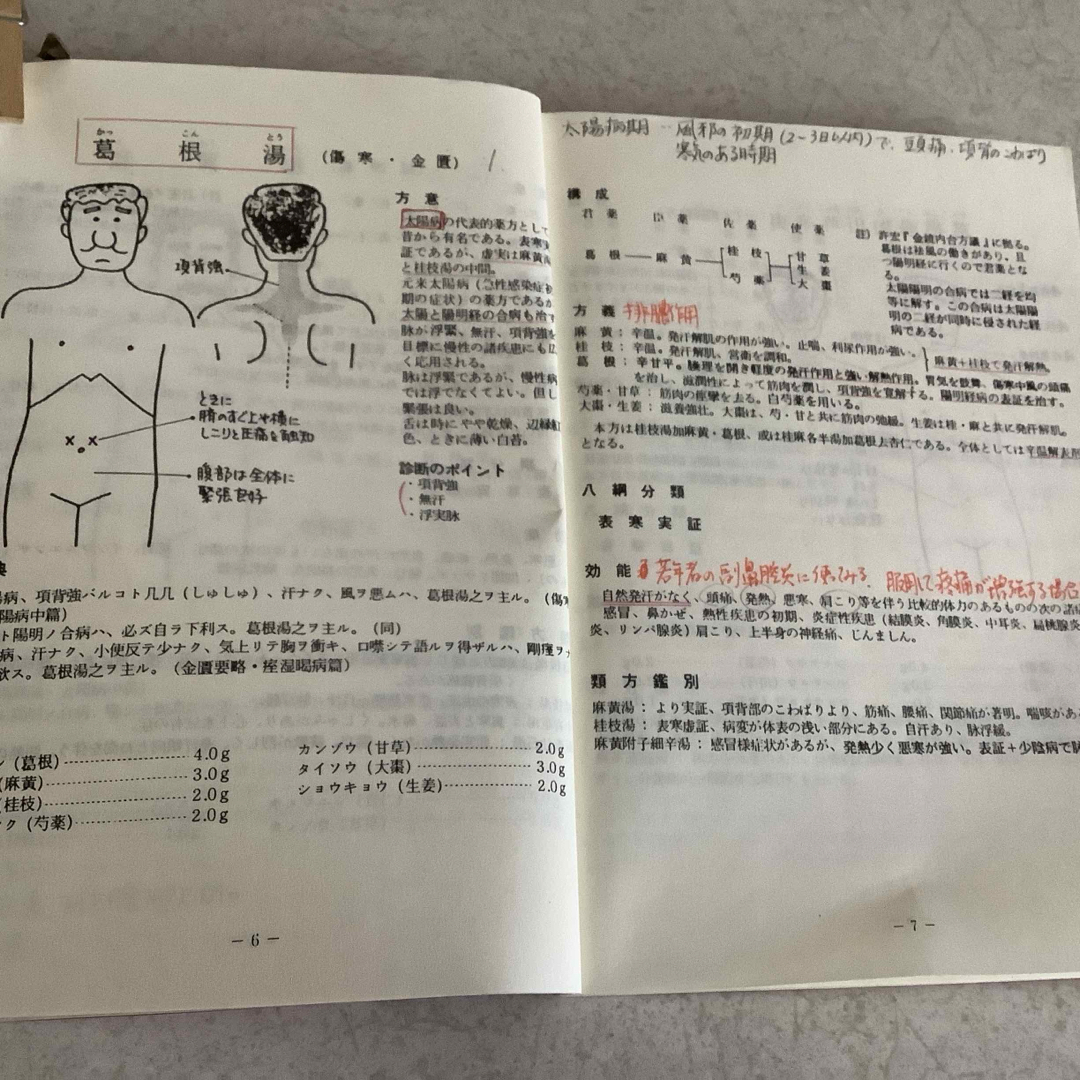 かっ こん とう
葛 根 湯
(傷寒・金匱) 1.
項背強
ときに
臍のすぐ上や横に
しこりと圧痛を触知
腹部は全体に
緊張良好
方 意
太陽病の代表的薬方として
昔から有名である。表寒実
証であるが、虚実は麻黄
と桂枝湯の中間。
元来太陽病（急性感染症初
期の症状）の薬方であるが
太陽と陽明経の合病も治す
脈が浮緊、無汗、項背強を
目標に慢性の諸疾患にも広
く応用される。
脈は浮緊であるが、慢性病
では浮でなくてよい。但し
緊張は良い。
舌は時にやや乾燥、辺縁紅
色、ときに薄い白苔。
診断のポイント
・項背強
・無汗
・浮実脈
典
陽病、項背強バルコト几几（しゅしゅ）、汗ナク、風ヲ悪ムハ、葛根湯之ヲ主ル。（傷寒
陽病中篇）
ト陽明ノ合病ハ、必ズ自ラ下利ス。葛根湯之ヲ主ル。（同）
病、汗ナク、小便反テ少ナク、気上リテ胸ヲ衝キ、口噤シテ語ルヲ得ザルハ、剛痙ヲ
欲ス。葛根湯之ヲ主ル。（金匱要略・痙湿暍病篇）
ン（葛根） 4.0g
（麻黄） 3.0g
（桂枝） 2.0g
ク（芍薬） 2.0g
カンゾウ（甘草） 2.0g
タイソウ（大棗） 3.0g
ショウキョウ（生姜） 2.0g
－6－
太陽病期 … 風邪の初期(2〜3日以内)で、頭痛、項背のこわばり
寒気のある時期
構 成
君薬 臣薬 佐薬 使薬
葛根 麻黄 桂枝 芍薬 甘草 生姜 大棗
註）許宏『金鏡内台方議』に拠る。
葛根は祛風の働きがあり、且
つ陽明経に行くので君薬とな
る。
太陽陽明の合病では二経を均
等に解す。この合病は太陽陽
明の二経が同時に侵された経
病である。
方 義 排膿作用
麻 黄：辛温。発汗解肌の作用が強い。止喘、利尿作用が強い。
桂 枝：辛温。発汗解肌、営衛を調和。
麻黄＋桂枝で発汗解熱。
葛 根：辛甘平。腠理を開き軽度の発汗作用と強い解熱作用。胃気を鼓舞、傷寒中風の頭痛
を治し、滋潤性によって筋肉を潤し、項背強を寛解する。陽明経病の表証を治す。
芍薬・甘草：筋肉の痙攣を去る。白芍薬を用いる。
大棗・生姜：滋養強壮。大棗は、芍・甘と共に筋肉の弛緩。生姜は桂・麻と共に発汗解肌。
本方は桂枝湯加麻黄・葛根、或は桂麻各半湯加葛根去杏仁である。全体としては辛温解表剤
となる。
八 綱 分 類
表 寒 実 証
効 能 若年者の副鼻腔炎に使ってみる. 服用して疼痛が増強する場合
自然発汗がなく、頭痛、発熱、悪寒、肩こり等を伴う比較的体力のあるものの次の諸症
感冒、鼻かぜ、熱性疾患の初期、炎症性疾患（結膜炎、角膜炎、中耳炎、扁桃腺炎
炎、リンパ腺炎）肩こり、上半身の神経痛、じんましん。
類 方 鑑 別
麻黄湯：より実証、項背部のこわばりより、筋痛、腰痛、関節痛が著明。喘咳がある
桂枝湯：表寒虚証、病変が体表の浅い部分にある。自汗あり、脈浮緩。
麻黄附子細辛湯：感冒様症状があるが、発熱少く悪寒が強い。表証＋少陰病で脈
－7－